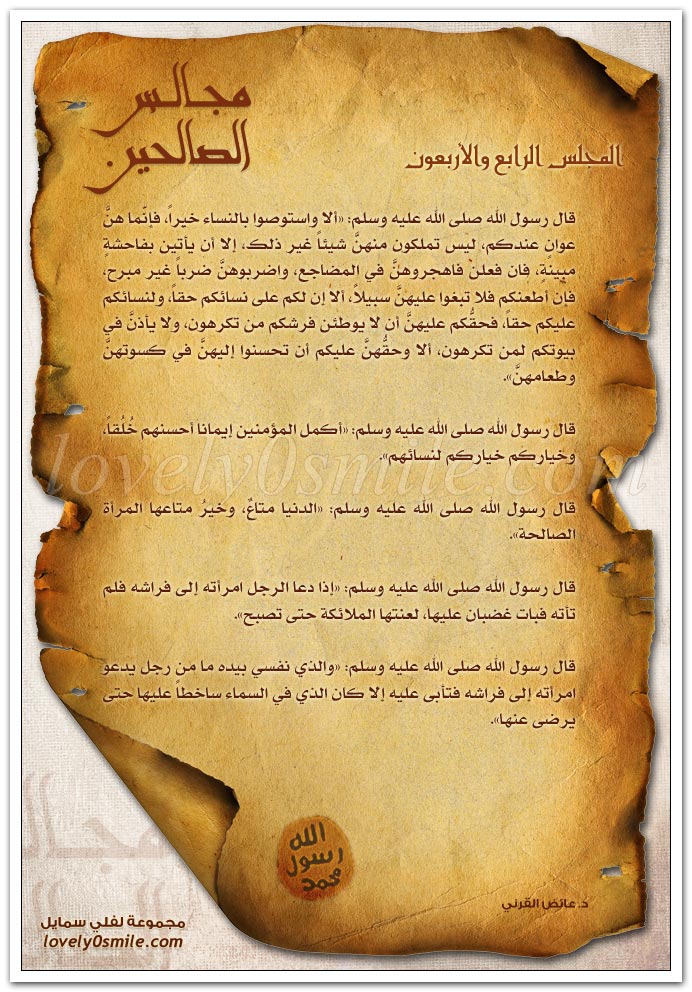 مجالس
الصالحين
المجلس الرابع والأربعون
قال رسول الله صلى الله عليه وسلم: «ألا واستوصوا بالنساء خيراً، فإنّما هنَّ
عوانٍ عندكم، ليس تملكون منهنَّ شيئاً غير ذلك، إلا أن يأتين بفاحشةٍ
مبينةٍ، فإن فعلن فاهجروهنَّ في المضاجع، واضربوهنَّ ضرباً غير مبرح،
فإن أطعنكم فلا تبغوا عليهنَّ سبيلاً، ألا إن لكم على نسائكم حقاً، ولنسائكم
عليكم حقاً، فحقُّكم عليهنَّ أن لا يوطئن فرشكم من تكرهون، ولا يأذنَّ في
بيوتكم لمن تكرهون، ألا وحقُّهنَّ عليكم أن تحسنوا إليهنَّ في كسوتهنَّ
وطعامهنَّ».
قال رسول الله صلى الله عليه وسلم: «أكمل المؤمنين إيمانا أحسنهم خُلُقاً،
وخياركم خياركم لنسائهم».
lovely0smile.com
قال رسول الله صلى الله عليه وسلم: «الدنيا متاعٌ، وخيرُ متاعها المرأة
الصالحة».
قال رسول الله صلى الله عليه وسلم: «إذا دعا الرجل امرأته إلى فراشه فلم
تأته فبات غضبان عليها، لعنتها الملائكة حتى تصبح».
قال رسول الله صلى الله عليه وسلم: «والذي نفسي بيده ما من رجل يدعو
امرأته إلى فراشه فتأبى عليه إلا كان الذي في السماء ساخطاً عليها حتى
يرضى عنها».
الله
رسول
محمد
د. عائض القرني
مجموعة لفلي سمايل
lovely0smile.com